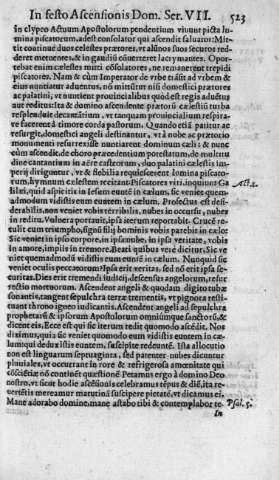 In festo Ascensionis Dom. Ser. VII. 523
in clypeo Actuum Apostolorum pendentium viuunt picta lu-
mina piscatorum, adest consolator qui ascendit saluator: Mit-
tit continuò duos cælestes præatores, vt alūnos suos securos red-
deret
tebat enim cælestes mitti cōsolatores, ne remanerent trepidi
piscatores. Nam & cùm Imperator de vrbe trāsit ad vrbem &
eius nuntiatur aduentus, nō mittūtur nisi domestici prætores
ac palatini, vt nuntient prouincialibus quod est regis aductus
aut reditus: ita & domino ascendente prætorū cælestiū turba
resplenduit
re facerent à timore corda pastorum. Quando etiā patitur ac
resurgit, domestici angeli destinantur, vt à nobe ac prætorio
monumenti resurrexisse nuntiarent dominum cæli: & nunc
cùm ascendit, de choro præcedentium potestatum, de multitu
dine cantantium in aëre castrorum, duo palatini cælestis im-
perij diriguntur, vt & flebilia requiescerent lumina piscato-
rum, hymnum cælestem recitant: Piscatores viri, inquiunt Ga Act. 1.
lilæi, quid aspicitis in Iesum euntē in cælum? sic veniet quem-
admodum vidistis eum euntem in cælum. Profectus est desi-
derabilis, non veniet vobis terribilis, nubes in occursu, nubes
in reditu. Vulnera portauit, ipsa iterum reportabit. Crucē re-
tulit cum triumpho, signū filij hominis vobis parebit in cælo:
Sic veniet in ipso corpore, in ipsa nube, in ipsa veritate, vobis
in amore, impijs in tremore. Beati quibus verè dicitur, Sic ve
niet quemadmodū vidistis eum euntē in cælum. Nunquid sic
veniet oculis peccatorum? Ipsa erit veritas, sed nō erit ipsa se-
curitas. Dies erit tremendi iudicij, descensus angelorum, resur
rectio mortuorum. Ascendent angeli & quodam digito tubæ
sonantis, tangent sepulchra terræ trementis, vt pignora resti-
tuant throno igneo iudicantis. Ascendent angeli ad sepulchra
prophetarū & ipsorum Apostolorum omniūmque sanctorū, &
dicent eis: Ecce est qui sic iterum redit quomodo ascēdit. Nos
diximus, quia sic veniet quomodo eum vidistis euntem in cæ-
lum: qui deduxistis euntem, suscipite redeuntē. Ista allocutio
non est linguarum septuaginta, sed parenter nubes dicuntur
pluuiales, vt occurrant in rore & refrigerosa amœnitate qui
cōscientiæ nō continēt questionē. Petamus ergo à domino Deo
nostro, vt sicut hodie ascēsionis celebramus tēpus & diē, ita re-
uertētis mereamur matutina suscipere pietatē, vt dicamus ei:
Mane adorabo domine, mane astabo tibi & contemplabor te. Psal. 5.
In